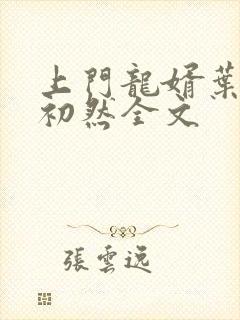 上門龍婿葉
初然全文
張雲逸